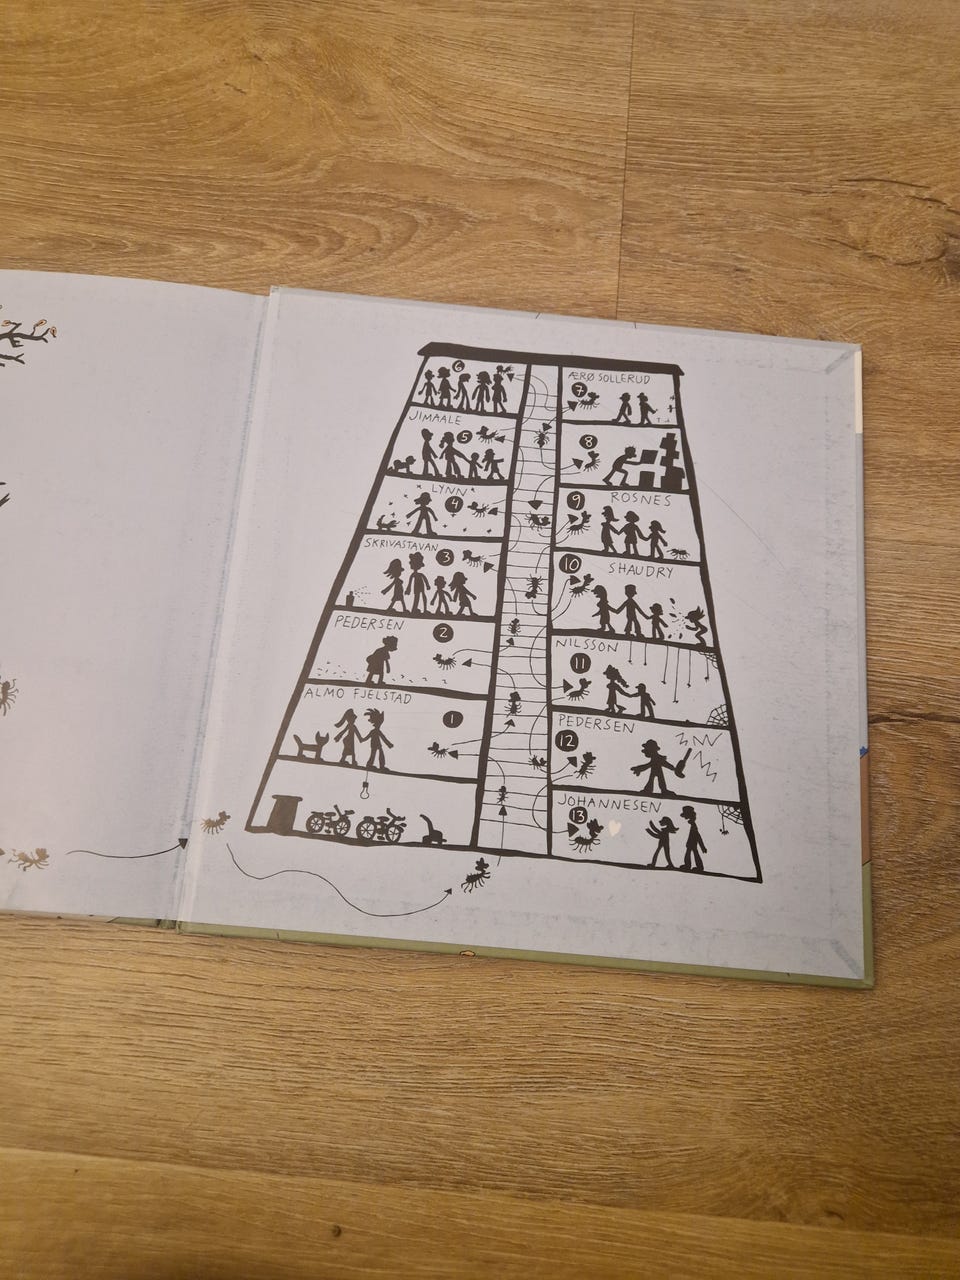 6
JIMAALE
5
LYNN
4
SKRIVASTAVAN
3
PEDERSEN
2
ALMO FJELSTAD
1
ÆRØ SOLLERUD
7
8
9
ROSNES
10
SHAUDRY
NILSSON
11
PEDERSEN
12
JOHANNESEN
13